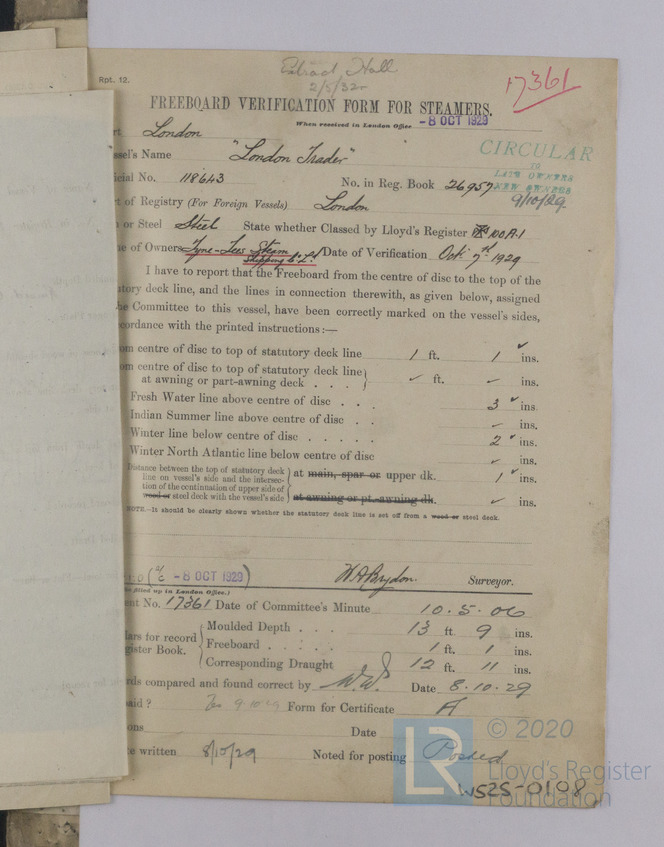 Rpt. 12.
Estrad Hall
2/5/32
17361
FREEBOARD VERIFICATION FORM FOR STEAMERS.
When received in London Office -8 OCT 1929
rt London
CIRCULAR
TO
LATE OWNERS
NEW OWNERS
9/10/29
ssel's Name "London Trader"
icial No. 118643 No. in Reg. Book 26957
t of Registry (For Foreign Vessels) London
n or Steel Steel State whether Classed by Lloyd's Register 100A1
e of Owners Tyne-Tees Steam Shipping Co. Ld. Date of Verification Oct. 7th 1929
I have to report that the Freeboard from the centre of disc to the top of the
utory deck line, and the lines in connection therewith, as given below, assigned
he Committee to this vessel, have been correctly marked on the vessel's sides,
cordance with the printed instructions:—
om centre of disc to top of statutory deck line 1 ft. 1 ✓ ins.
om centre of disc to top of statutory deck line
at awning or part-awning deck . . . ✓ ft. ✓ ins.
Fresh Water line above centre of disc . . . 3 ✓ ins.
Indian Summer line above centre of disc . . ✓ ins.
Winter line below centre of disc . . . . . 2 ✓ ins.
Winter North Atlantic line below centre of disc ✓ ins.
Distance between the top of statutory deck
line on vessel's side and the intersec-
tion of the continuation of upper side of
wood or steel deck with the vessel's side
at main, spar or upper dk. 1 ✓ ins.
at awning or pt.-awning dk. ✓ ins.
NOTE.—It should be clearly shown whether the statutory deck line is set off from a wood or steel deck.
-8 OCT 1929
W A Brydon. Surveyor.
e filled up in London Office.)
ent No. 17361 Date of Committee's Minute 10.5.06
lars for record
gister Book.
Moulded Depth . . . 13 ft. 9 ins.
Freeboard . . . . . 1 ft. 1 ins.
Corresponding Draught 12 ft. 11 ins.
rds compared and found correct by Date 8.10.29
aid ? Form for Certificate A
ons Date
te written 8/10/29 Noted for posting Posted
LR
© 2020
Lloyd's Register
Foundation
W525-0108